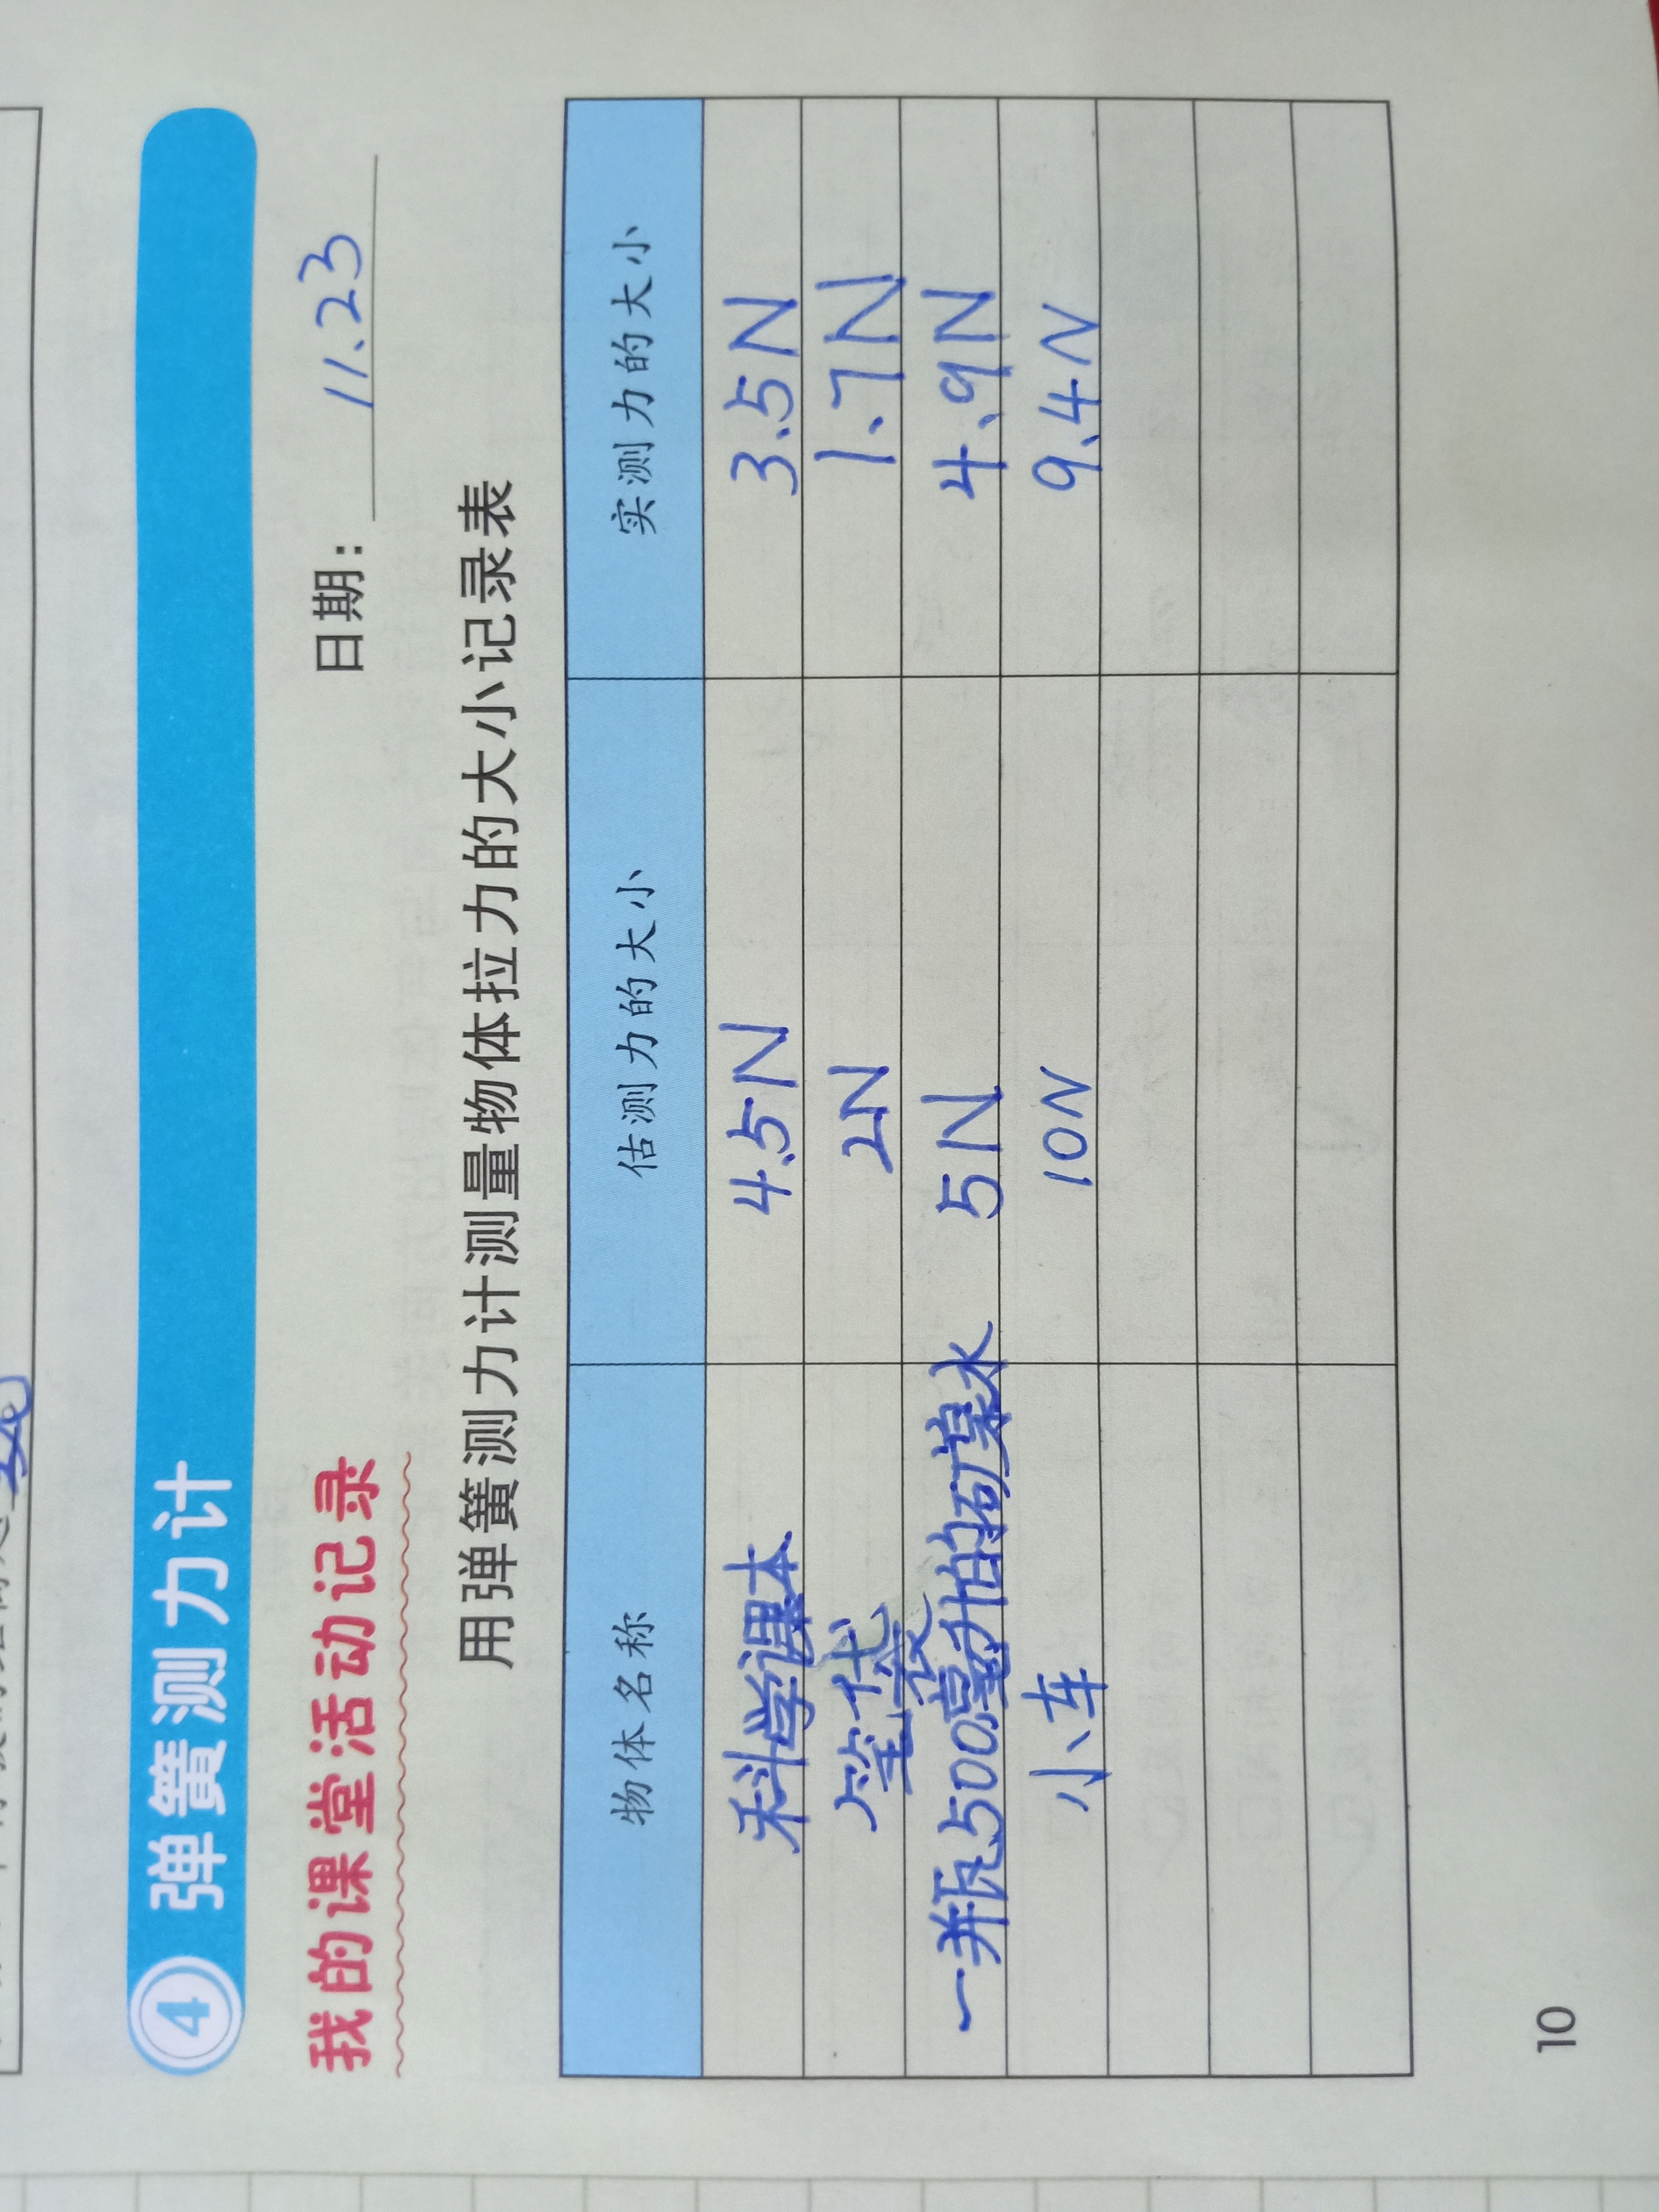 4 弹簧测力计
我的课堂活动记录 日期：11.23
用弹簧测力计测量物体拉力的大小记录表
物体名称 估测力的大小 实测力的大小
科学课本 4.5N 3.5N
笔袋 2N 1.7N
一瓶500毫升的矿泉水 5N 4.9N
小车 10N 9.4N
10